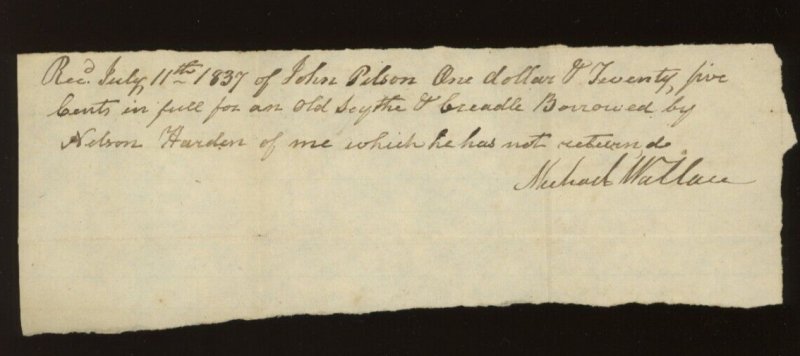 Recd. July, 11th 1837 of John Pelson One dollar & Twenty, five
Cents in full for an Old Scythe & Creadle Borrowed by
Nelson Harden of me which he has not returnd.
Michael Wallace